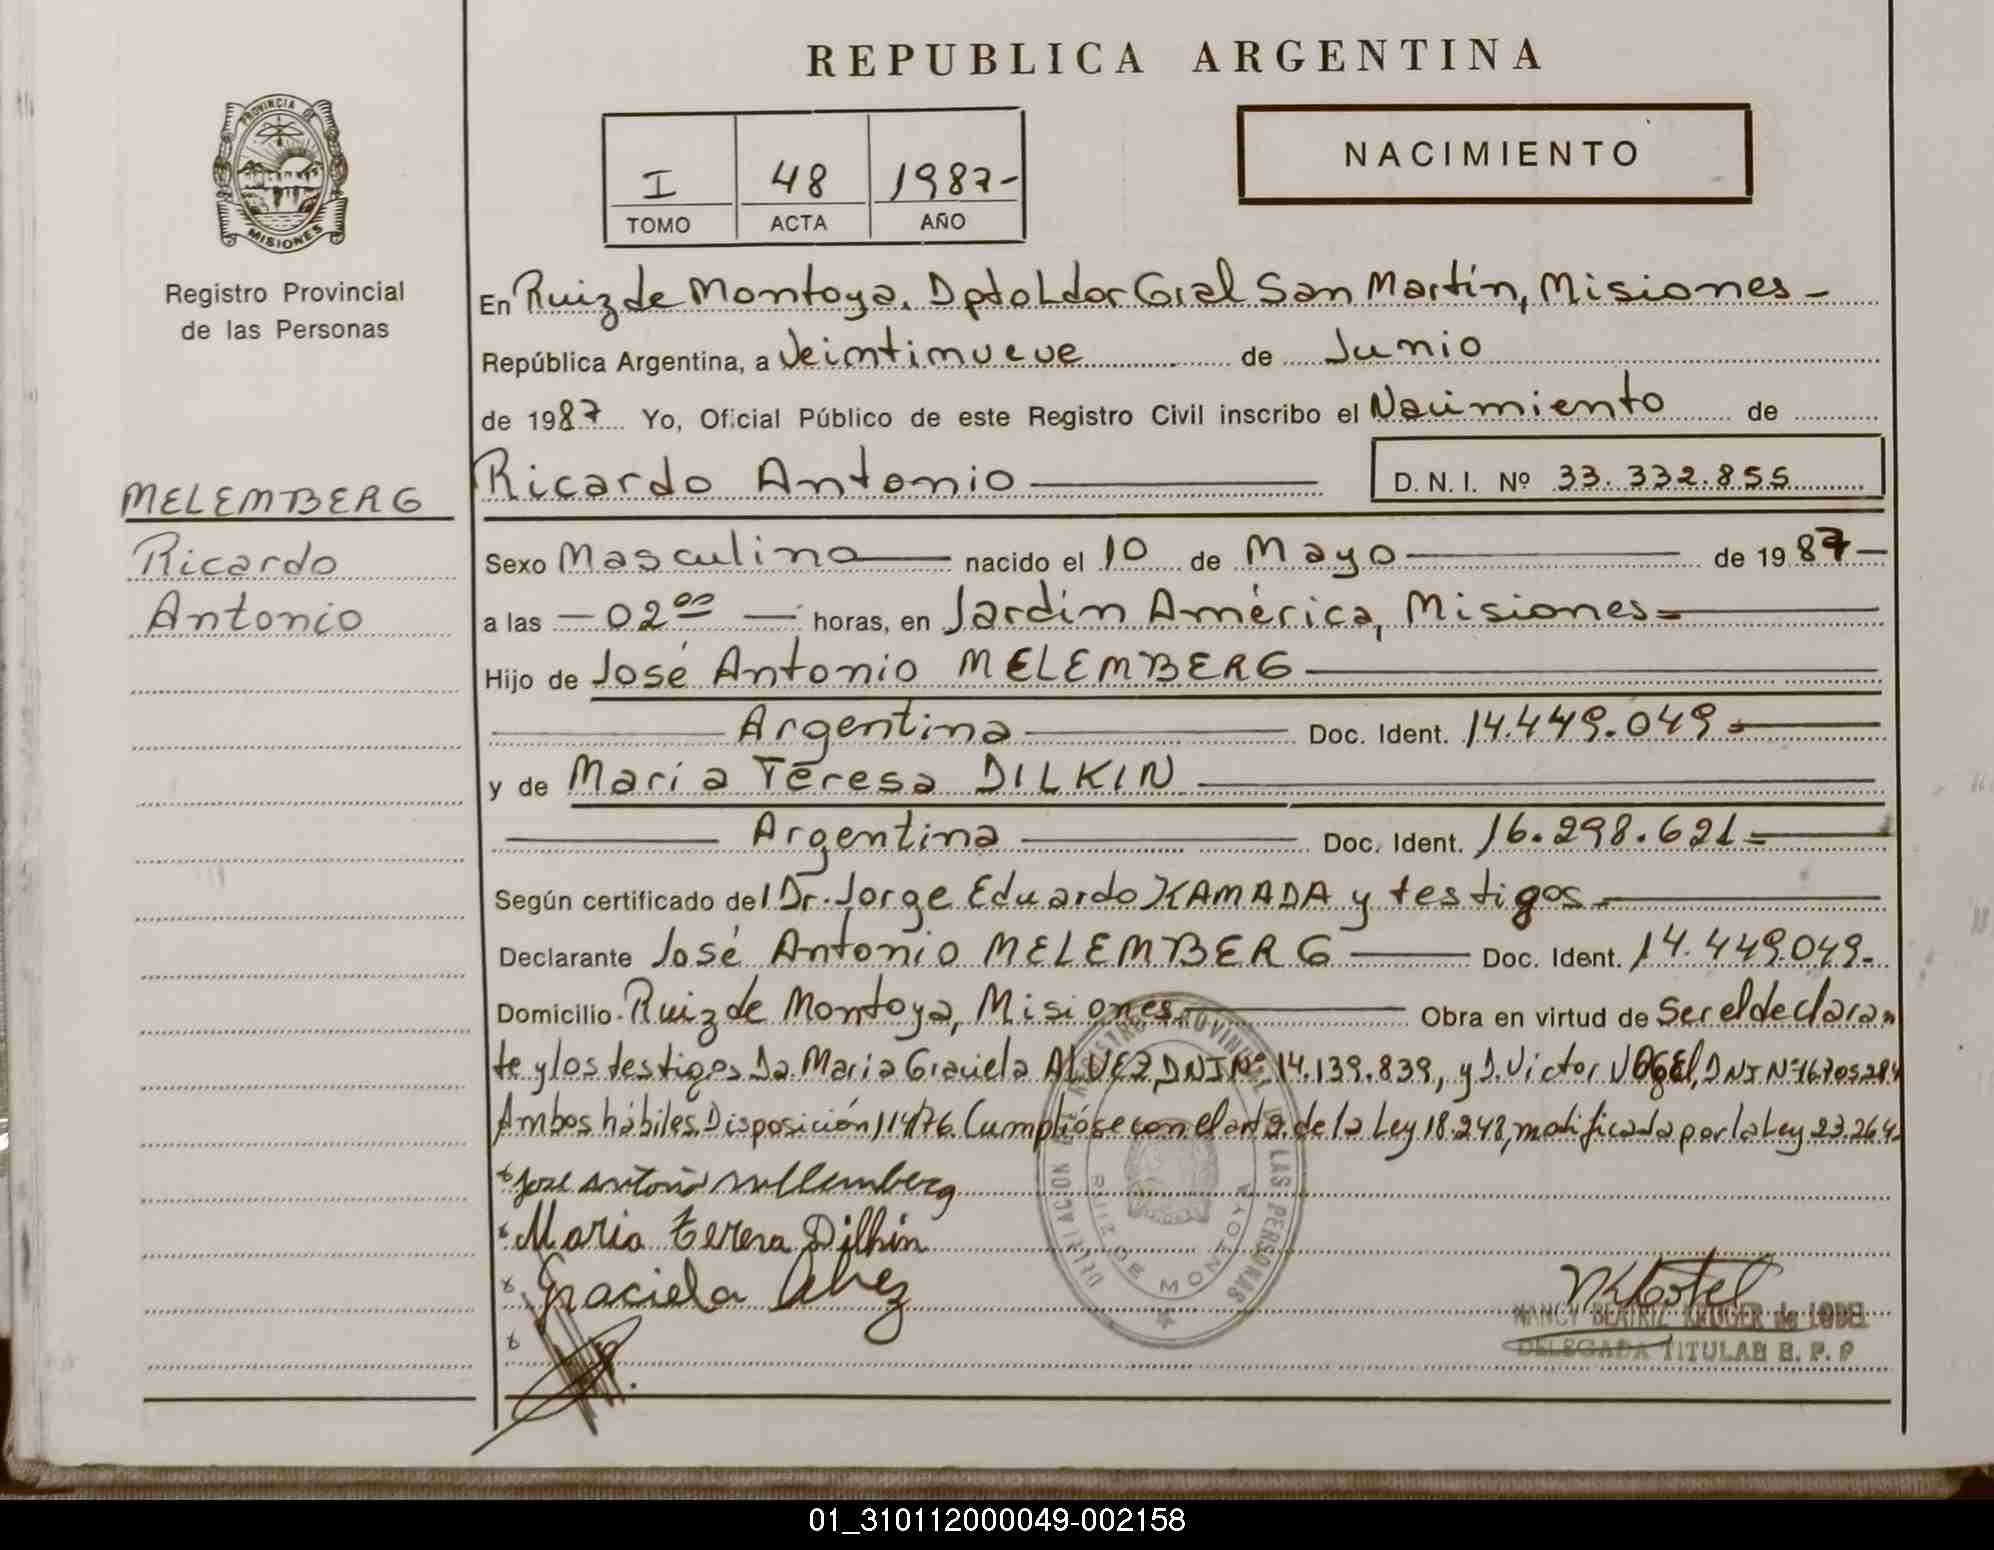 REPUBLICA ARGENTINA
PROVINCIA DE
MISIONES
Registro Provincial
de las Personas
I 48 1987-
TOMO ACTA AÑO
NACIMIENTO
En Ruiz de Montoya, Dpto Ldor Gral San Martín, Misiones -
República Argentina, a Veintinueve de Junio
de 1987 Yo, Oficial Público de este Registro Civil inscribo el Nacimiento de
MELEMBERG
Ricardo
Antonio
Ricardo Antonio D. N. I. Nº 33.332.855
Sexo Masculino nacido el 10 de Mayo de 1987-
a las - 02 00 - horas, en Jardín América, Misiones=
Hijo de José Antonio MELEMBERG
Argentina Doc. Ident. 14.449.049-
y de María Teresa DILKIN
Argentina Doc. Ident. 16.298.621=
Según certificado del Dr. Jorge Eduardo KAMADA y testigos-
Declarante José Antonio MELEMBERG Doc. Ident. 14.449.049-
Domicilio Ruiz de Montoya, Misiones Obra en virtud de Ser el declaran
te y los testigos Da. Maria Graciela ALVEZ, DNI Nº 14.139.839, y D. Victor VOGEL, DNI Nº 16.705.284
Ambos hábiles. Disposición 114/76. Cumplióse con el art 2. de la Ley 18.248, modificada por la Ley 23.264-
Jose Antonio Mellemberg
Maria teresa Dilkin
Graciela Alvez
DELEGACION DE REGISTRO PROVINCIAL DE LAS PERSONAS
RUIZ DE MONTOYA
NANCY BEATRIZ KRUGER de LODEL
DELEGADA TITULAR R. P. P
01_310112000049-002158